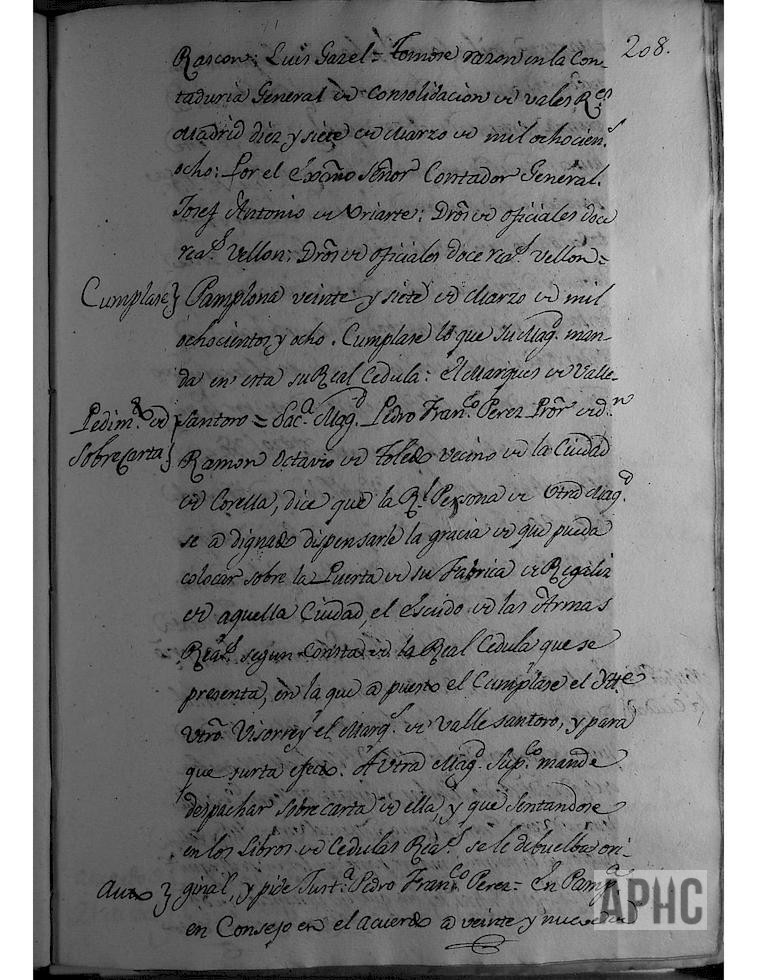 208.
Rascon: Luis Gazel = Tomose razon en la Con-
taduria General de Consolidacion de vales R.es
Madrid diez y siete de Marzo de mil ochocien.s
ocho: Por el Exc̃mo Señor Contador General.
Josef Antonio de Uriarte: Dr̃os de oficiales doce
rea.s Vellon: Dr̃os de oficiales doce rea.s vellon =
Cumplase} Pamplona veinte y siete de Marzo de mil
ochocientos y ocho. Cumplase lo que su Mag.d man-
da en esta su Real Cedula: El Marques de Valle-
Pedim.to de santoro = Sac.a Mag.d Pedro Fran.co Perez Pror̃ de d.n
Sobrecarta} Ramon Octavio de Toledo vecino de la Ciudad
de Corella, dice que la R.l Persona de Vtra Mag.d
se a dignado dispensarle la gracia de que pueda
colocar sobre la Puerta de su Fabrica de Regaliz
de aquella Ciudad, el Escudo de las Armas
Rea.s segun consta de la Real Cedula que se
presenta, en la que a puesto el Cumplase el Iltre
Vtro Visorrey el Marq.s de Vallesantoro, y para
que surta efecto. A Vtra Mag.d Sup.co mande
despachar Sobrecarta de ella, y que sentandose
en los Libros de Cedulas Rea.s se le debuelba ori-
Auto} ginal, y pide Just.a Pedro Fran.co Perez = En Pamp.a
en Consejo en el Acuerdo a veinte y nueve de
APHC